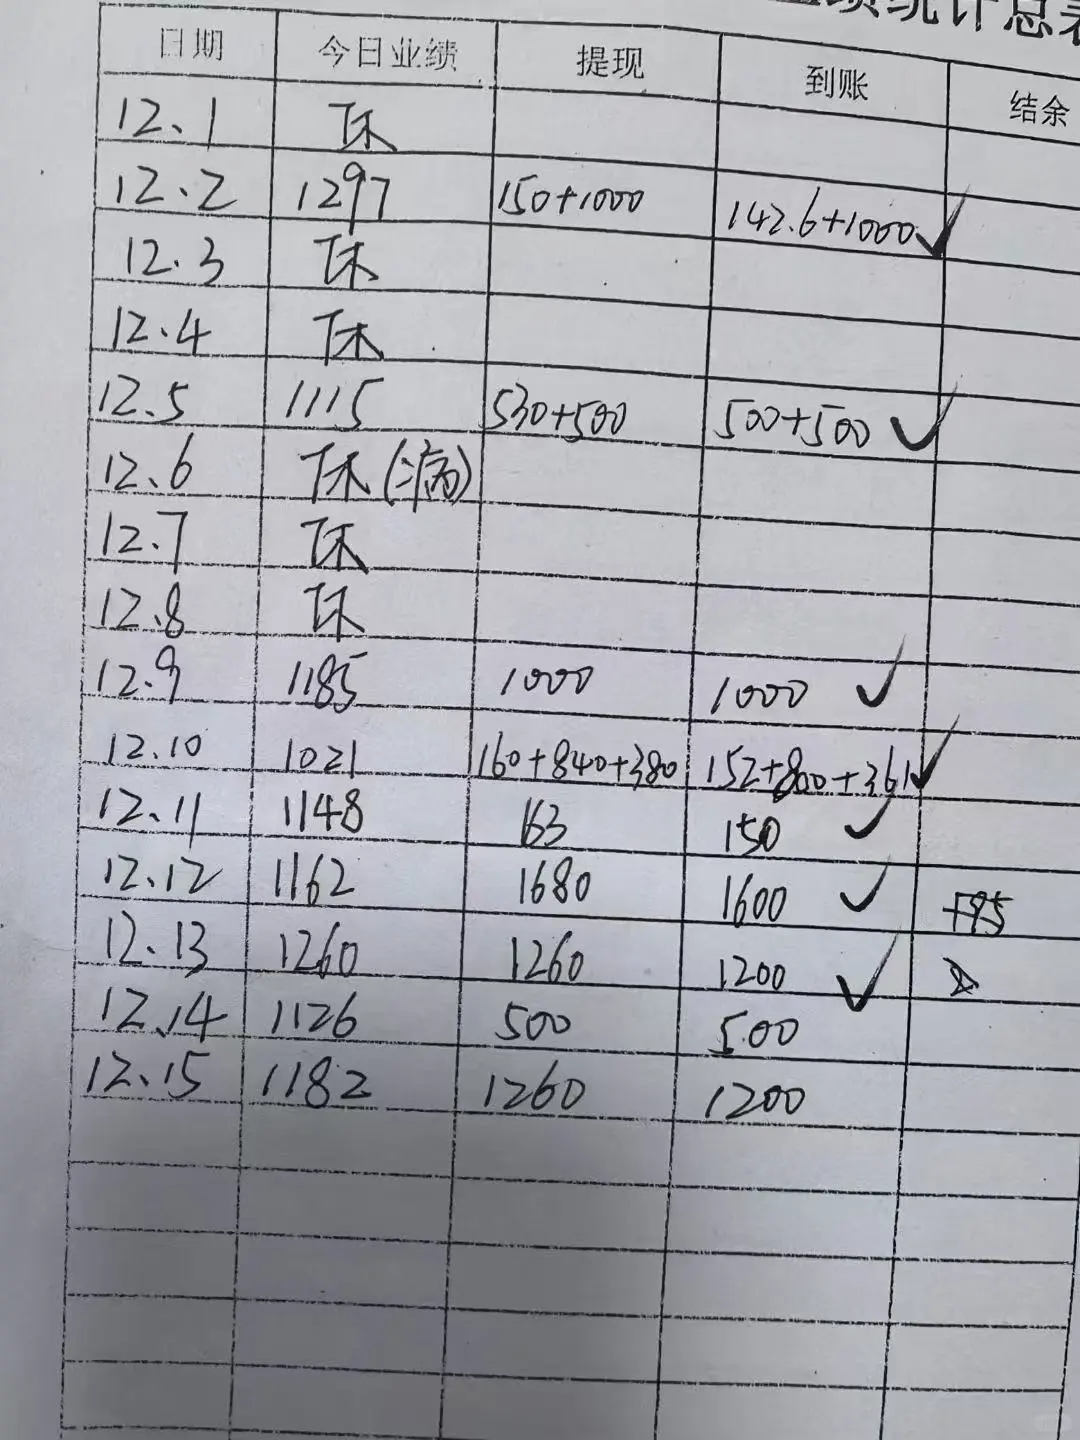 业绩统计总表
日期 今日业绩 提现 到账 结余
12.1 休
12.2 1297 150+1000 142.6+1000 ✓
12.3 休
12.4 休
12.5 1115 530+500 500+500 ✓
12.6 休(病)
12.7 休
12.8 休
12.9 1185 1000 1000 ✓
12.10 1021 160+840+380 152+800+361 ✓
12.11 1148 163 150 ✓
12.12 1162 1680 1600 ✓
12.13 1260 1260 1200 ✓
12.14 1126 500 500
12.15 1182 1260 1200